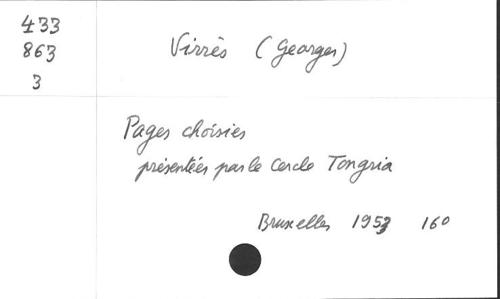 433
863
3
Virrès (Georges)
Pages choisies
présentées par le Cercle Tongria
Bruxelles 1953 16°